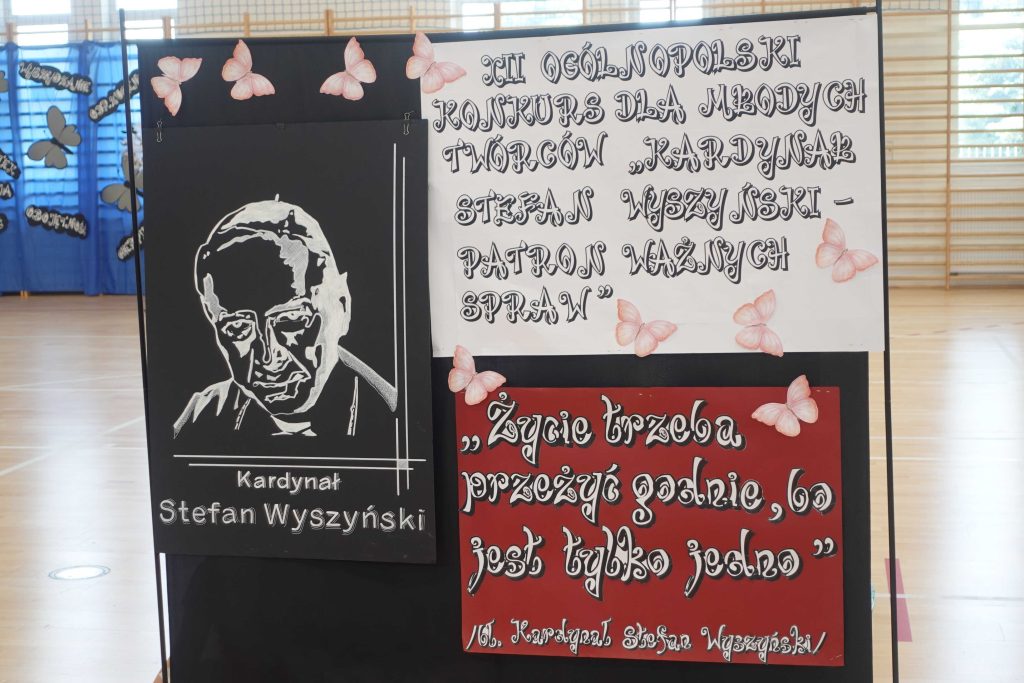 XII OGÓLNOPOLSKI
KONKURS DLA MŁODYCH
TWÓRCÓW „KARDYNAŁ
STEFAN WYSZYŃSKI –
PATRON WAŻNYCH
SPRAW”
Kardynał
Stefan Wyszyński
„Życie trzeba
przeżyć godnie, bo
jest tylko jedno”
/bł. Kardynał Stefan Wyszyński/